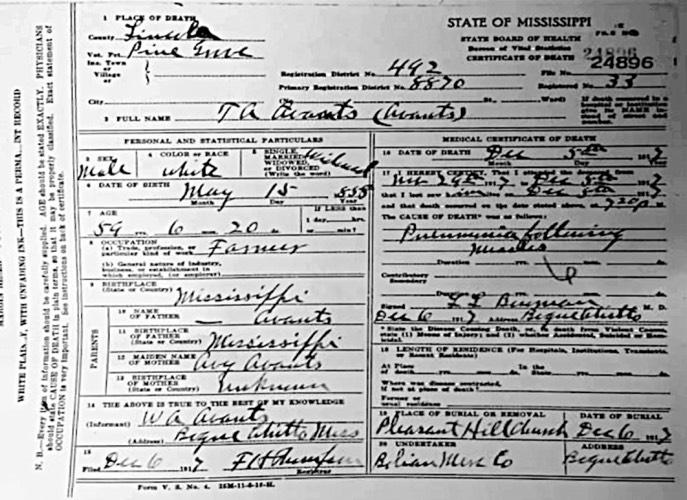 1 PLACE OF DEATH
County Lincoln
Vot. Pct. Pine Grove
Inc. Town or
Village or
City
STATE OF MISSISSIPPI
STATE BOARD OF HEALTH
Bureau of Vital Statistics
CERTIFICATE OF DEATH
24896
24896
Registration District No. 492 File No.
Primary Registration District No. 8870 Registered No. 33
(No. St., Ward)
If death occurred in a hospital or institution
2 FULL NAME T A Avants (Avants)
PERSONAL AND STATISTICAL PARTICULARS
3 SEX Male
4 COLOR or RACE white
5 SINGLE, MARRIED, WIDOWED, or DIVORCED (Write the word)
6 DATE OF BIRTH May 15
Month Day Year
7 AGE
If LESS than 1 day, hrs. or min.?
59 yrs. 6 20
8 OCCUPATION
(a) Trade, profession, or particular kind of work Farmer
(b) General nature of industry, business, or establishment in which employed, (or employer)
9 BIRTHPLACE
(State or Country) Mississippi
PARENTS
10 NAME OF FATHER Avants
11 BIRTHPLACE OF FATHER
(State or Country) Mississippi
12 MAIDEN NAME OF MOTHER Avants
13 BIRTHPLACE OF MOTHER
(State or Country) Unknown
14 THE ABOVE IS TRUE TO THE BEST OF MY KNOWLEDGE
(Informant) W A Avants
(Address) Bogue Chitto Miss
15
Filed Dec 6 1917
Registrar
Form V. S. No. 4.
MEDICAL CERTIFICATE OF DEATH
16 DATE OF DEATH Dec 5th 1917
Month Day
17 I HEREBY CERTIFY, That I attended the deceased from
Nov 29th 1917 Dec 5th 1917
that I last saw Dec 5th
and that death occurred on the date stated above, at 7 20 p m.
The CAUSE OF DEATH* was as follows:
Pneumonia following
Measles
Duration
Contributory
Secondary
Duration
Signed M. D.
Dec 6 1917 Address Bogue Chitto
* State the Disease Causing Death, or, in death from Violent Causes, state (1) Means of Injury; and (2) whether Accidental, Suicidal or Homicidal.
18 LENGTH OF RESIDENCE (For Hospitals, Institutions, Transients, or Recent Residents)
At Place In the
Where was disease contracted,
if not at place of death?
Former or
usual residence
19 PLACE OF BURIAL OR REMOVAL DATE OF BURIAL
Pleasant Hill Church Dec 6 1917
20 UNDERTAKER ADDRESS
Merc Co Bogue Chitto
N. B.—Every item of information should be carefully supplied. AGE should be stated EXACTLY. PHYSICIANS
should state CAUSE OF DEATH in plain terms, so that it may be properly classified. Exact statement of
OCCUPATION is very important. See instructions on back of certificate.